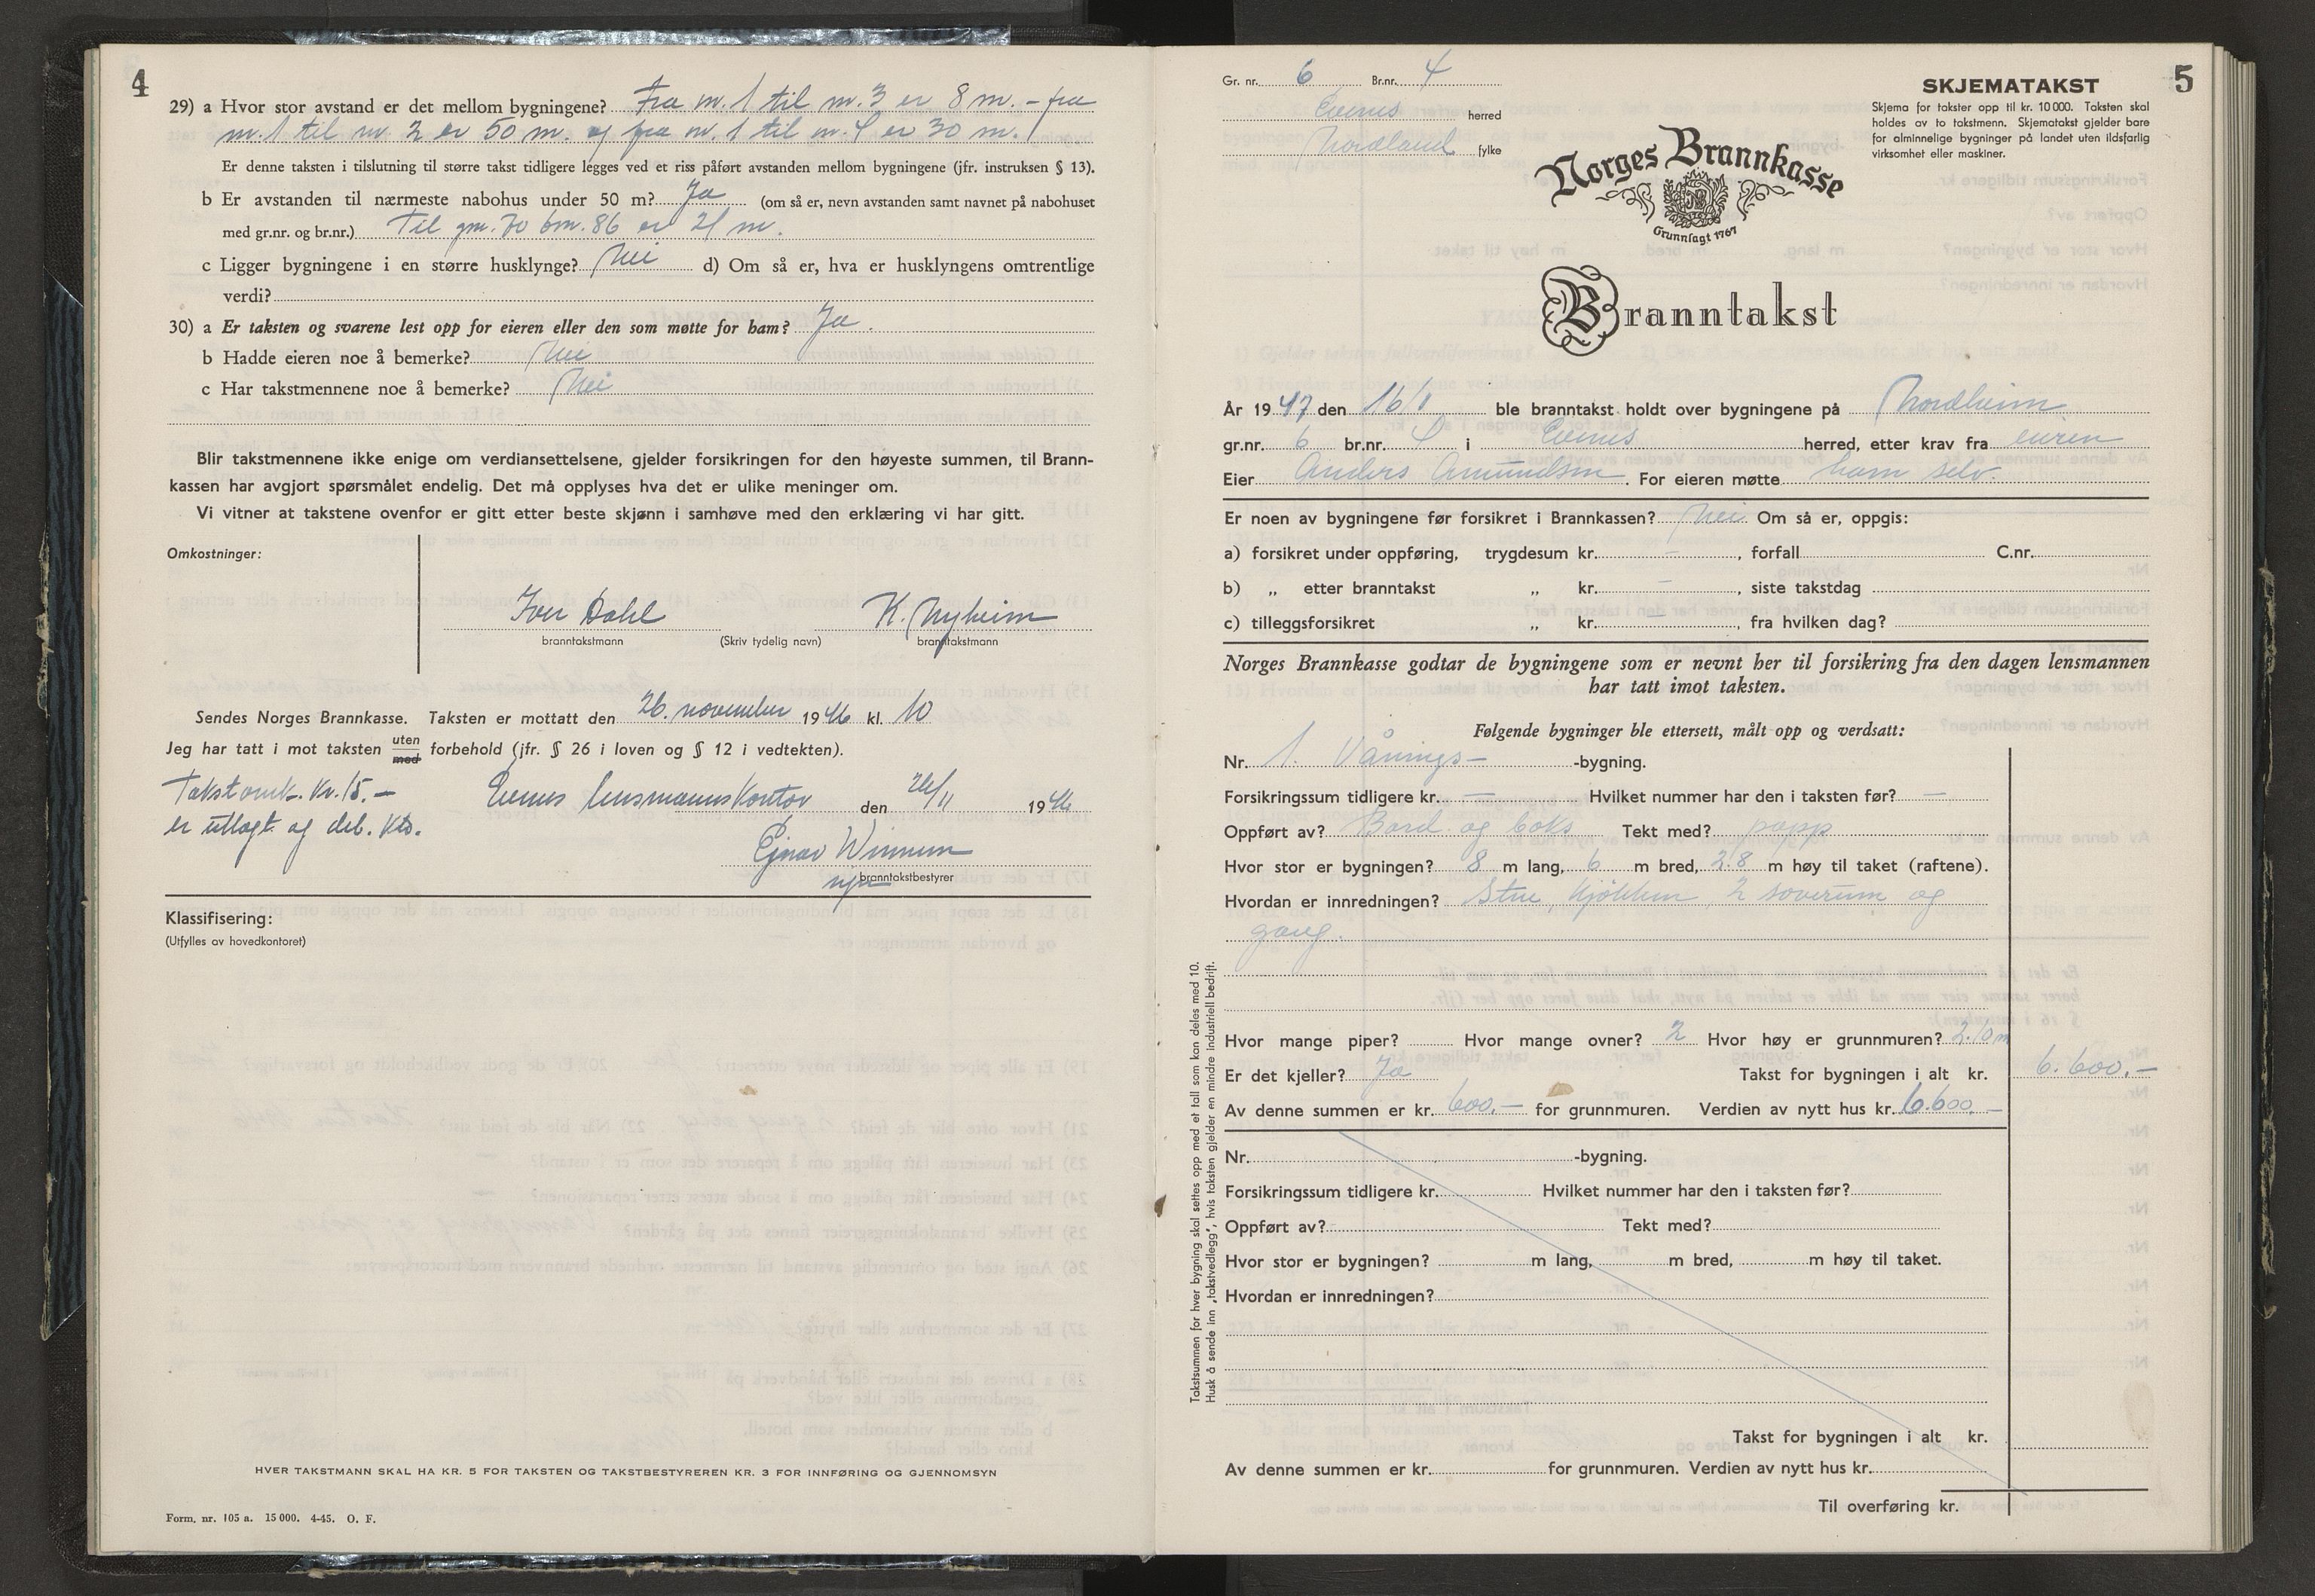 4
29) a Hvor stor avstand er det mellom bygningene? Fra nr. 1 til nr. 3 er 8 m. – fra
nr. 1 til nr. 2 er 50 m. og fra nr. 1 til nr. 4 er 30 m.
Er denne taksten i tilslutning til større takst tidligere legges ved et riss påført avstanden mellom bygningene (jfr. instruksen § 13).
b Er avstanden til nærmeste nabohus under 50 m? Ja (om så er, nevn avstanden samt navnet på nabohuset
med gr.nr. og br.nr.) Til gnr. 70 bnr. 86 er 21 m.
c Ligger bygningene i en større husklynge? Nei d) Om så er, hva er husklyngens omtrentlige
verdi?
30) a Er taksten og svarene lest opp for eieren eller den som møtte for ham? Ja.
b Hadde eieren noe å bemerke? Nei
c Har takstmennene noe å bemerke? Nei
Blir takstmennene ikke enige om verdiansettelsene, gjelder forsikringen for den høyeste summen, til Brann-
kassen har avgjort spørsmålet endelig. Det må opplyses hva det er ulike meninger om.
Vi vitner at takstene ovenfor er gitt etter beste skjønn i samhøve med den erklæring vi har gitt.
Omkostninger:
Iver Dahl K. Nyheim
branntakstmann (Skriv tydelig navn) branntakstmann
Sendes Norges Brannkasse. Taksten er mottatt den 26. november 1946 kl. 10
Jeg har tatt i mot taksten uten med forbehold (jfr. § 26 i loven og § 12 i vedtekten).
Takstomk. kr. 15.–
er utlagt og deb. kto.
Evenes lensmannskontor den 26/11 1946
Ejnar Winnem
branntakstbestyrer
Klassifisering:
(Utfylles av hovedkontoret)
HVER TAKSTMANN SKAL HA KR. 5 FOR TAKSTEN OG TAKSTBESTYREREN KR. 3 FOR INNFØRING OG GJENNOMSYN
Form. nr. 105 a. 15 000. 4-45. O. F.
5
Gr. nr. 6 Br.nr. 4
Evenes herred
Nordland fylke
SKJEMATAKST
Skjema for takster opp til kr. 10 000. Taksten skal
holdes av to takstmenn. Skjematakst gjelder bare
for alminnelige bygninger på landet uten ildsfarlig
virksomhet eller maskiner.
Norges Brannkasse
Grunnlagt 1767
Branntakst
År 1947 den 16/1 ble branntakst holdt over bygningene på Nordheim
gr.nr. 6 br.nr. 4 i Evenes herred, etter krav fra eieren
Eier Anders Amundsen. For eieren møtte ham selv.
Er noen av bygningene før forsikret i Brannkassen? Nei Om så er, oppgis:
a) forsikret under oppføring, trygdesum kr. – , forfall C.nr.
b) „ etter branntakst „ kr. – , siste takstdag
c) tilleggsforsikret „ kr. – , fra hvilken dag?
Norges Brannkasse godtar de bygningene som er nevnt her til forsikring fra den dagen lensmannen
har tatt imot taksten.
Følgende bygninger ble ettersett, målt opp og verdsatt:
Nr. 1. Vånings– -bygning.
Forsikringssum tidligere kr. – Hvilket nummer har den i taksten før? –
Oppført av? Bord og boks Tekt med? papp
Hvor stor er bygningen? 8 m lang, 6 m bred, 2.8 m høy til taket (raftene).
Hvordan er innredningen? Stue, kjøkken, 2 soverum og
gang.
Hvor mange piper? Hvor mange ovner? 2 Hvor høy er grunnmuren? 2.10 m
Er det kjeller? Ja Takst for bygningen i alt kr. 6.600.–
Av denne summen er kr. 600.– for grunnmuren. Verdien av nytt hus kr. 6.600.–
Nr. -bygning.
Forsikringssum tidligere kr. Hvilket nummer har den i taksten før?
Oppført av? Tekt med?
Hvor stor er bygningen? m lang, m bred, m høy til taket.
Hvordan er innredningen?
Takst for bygningen i alt kr.
Av denne summen er kr. for grunnmuren. Verdien av nytt hus kr.
Til overføring kr.
Takstsummen for hver bygning skal settes opp med et tall som kan deles med 10.
Husk å sende inn „takstvedlegg", hvis taksten gjelder en mindre industriell bedrift.